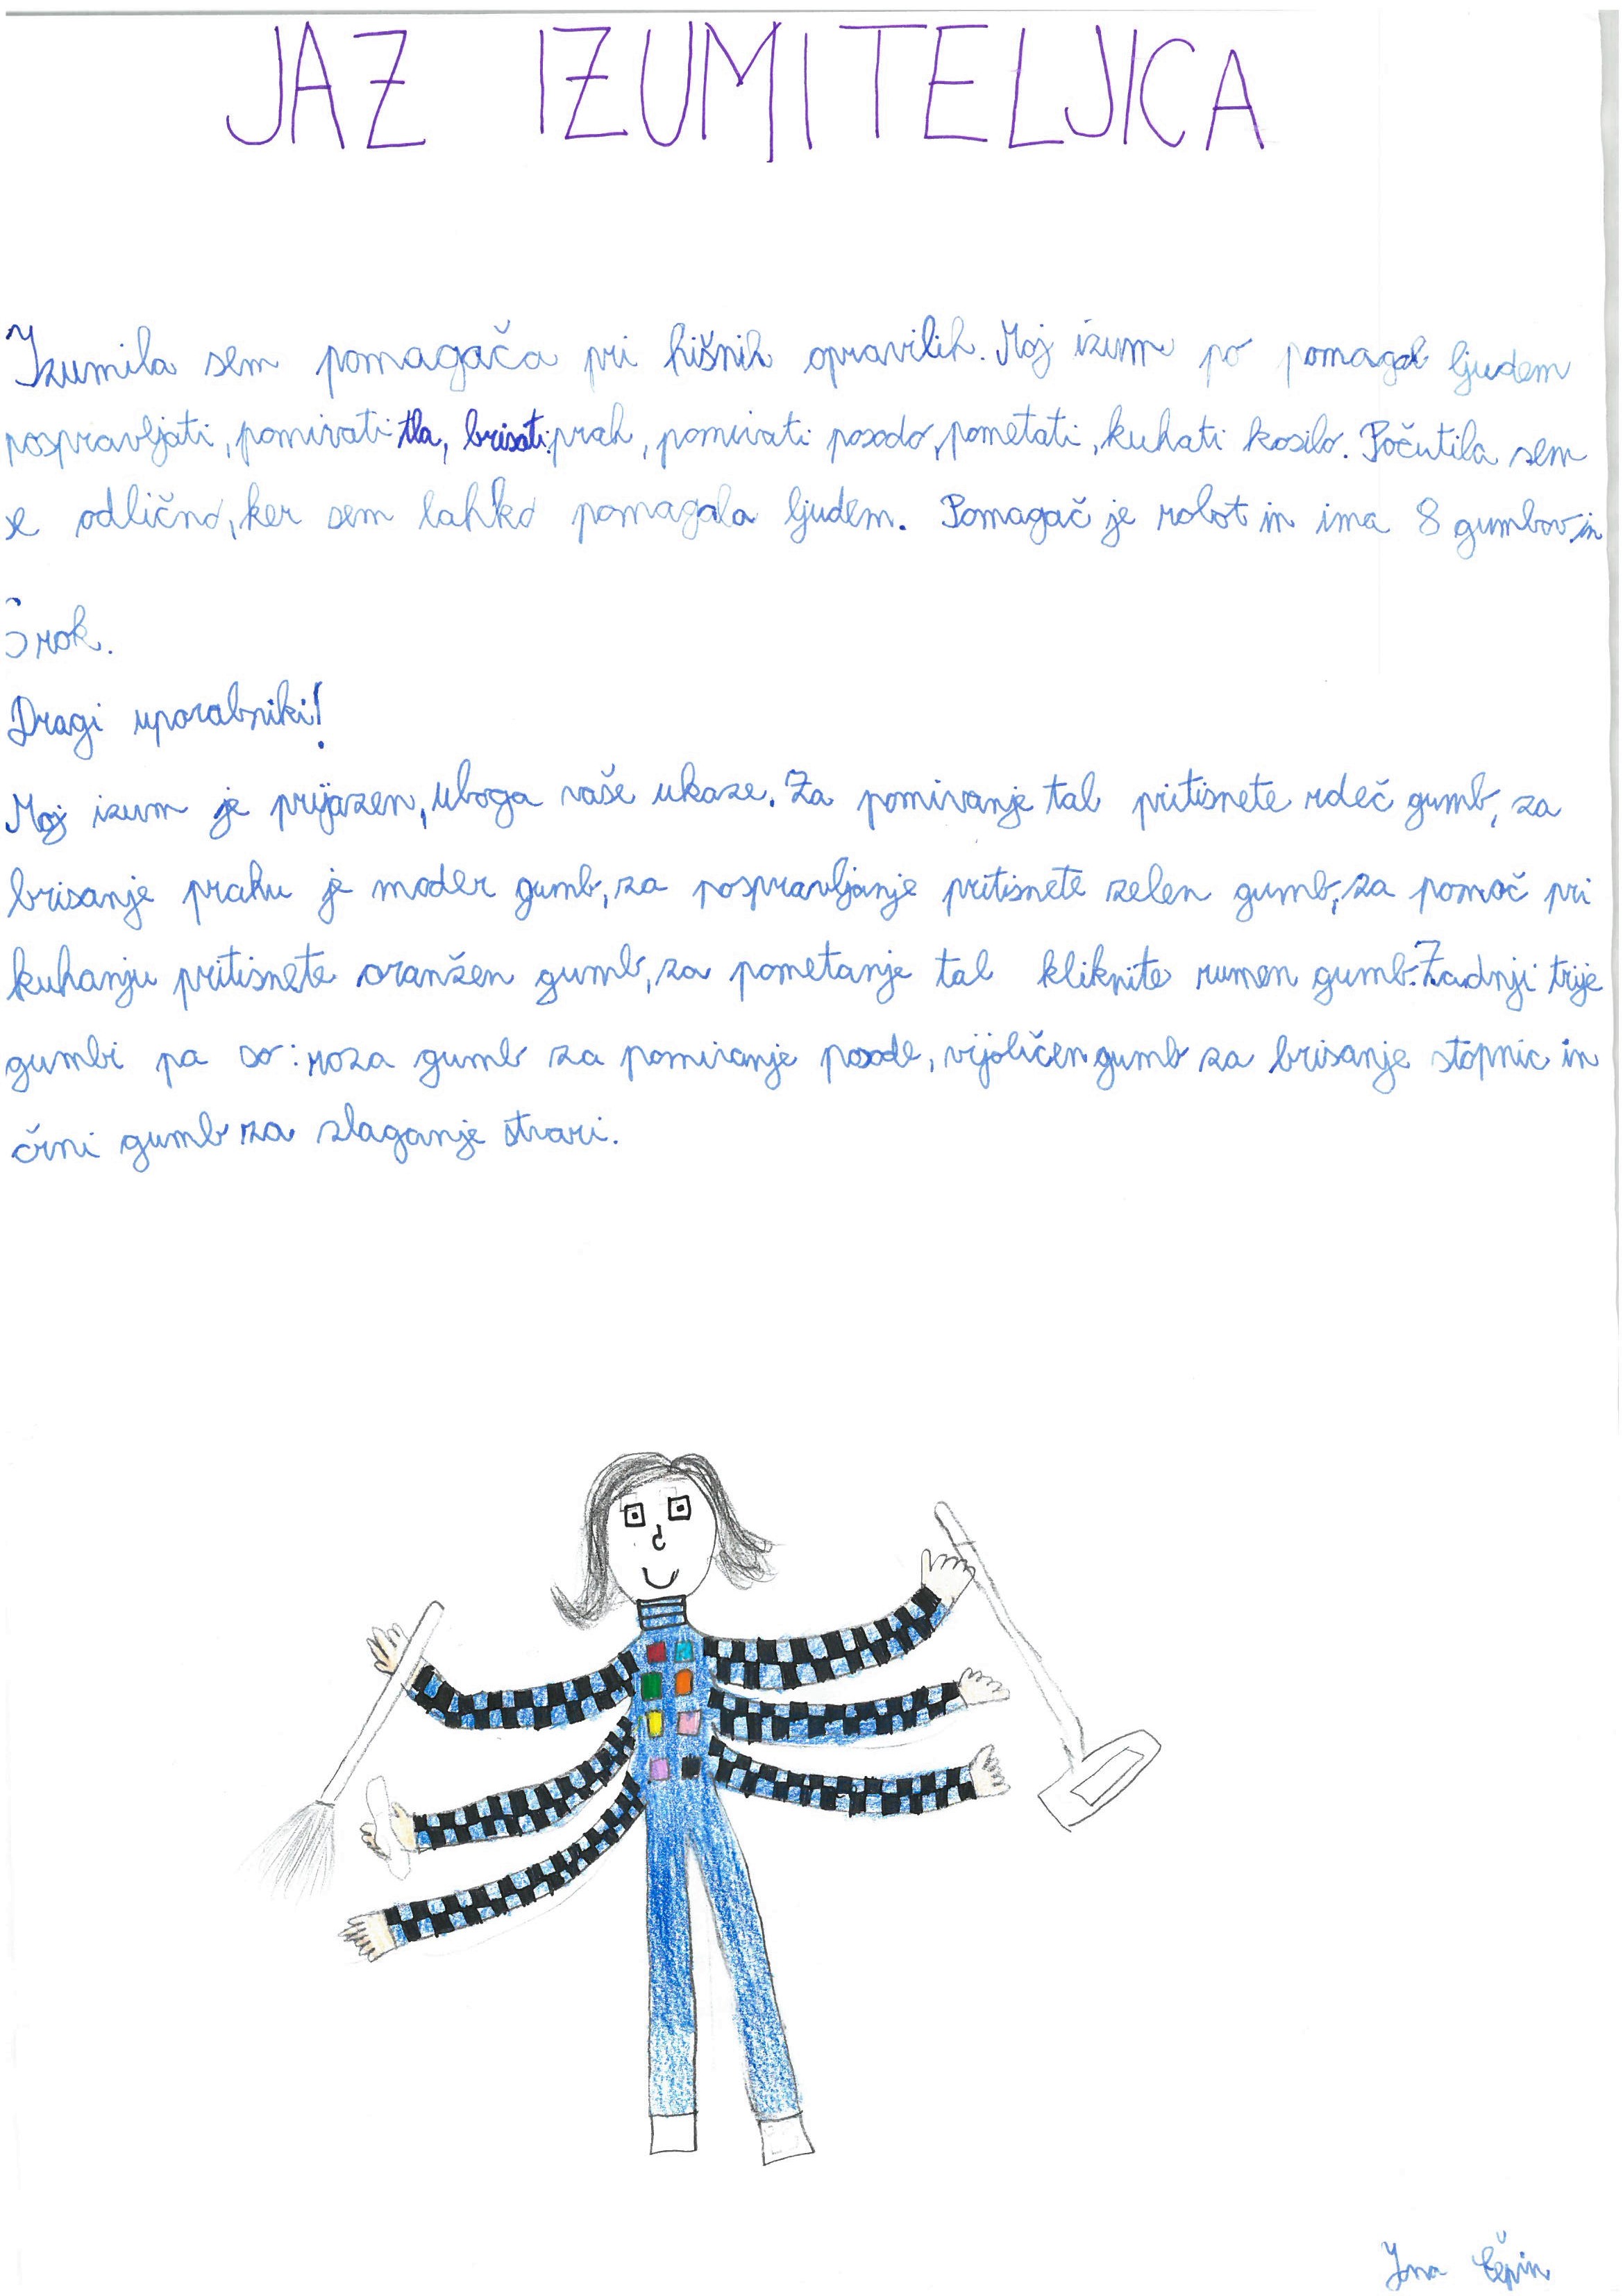 JAZ IZUMITELJICA
Izumila sem pomagača pri hišnih opravilih. Moj izum po pomagal ljudem
pospravljati, pomivati tla, brisati prah, pomivati posodo, pometati, kuhati kosilo. Počutila sem
se odlično, ker sem lahko pomagala ljudem. Pomagač je robot in ima 8 gumbov in
rok.
Dragi uporabniki!
Moj izum je prijazen, uboga vaše ukaze. Za pomivanje tal pritisnete rdeč gumb, za
brisanje prahu je moder gumb, za pospravljanje pritisnete zelen gumb, za pomoč pri
kuhanju pritisnete oranžen gumb, za pometanje tal kliknite rumen gumb. Zadnji trije
gumbi pa so: roza gumb za pomivanje posode, vijoličen gumb za brisanje stopnic in
črni gumb za zlaganje stvari.